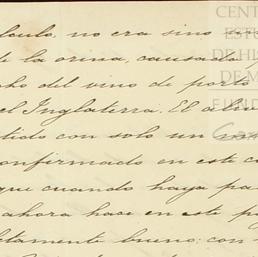 lculo, no era sino
de la orina, causada
cho del vino de porto
el Inglaterra. El a
tido con solo un
onfirmado en este c
que cuando haya pa
ahora hace en este p
ctamente bueno; con
CENT
ESTU
DE HIS
DE M
FUND